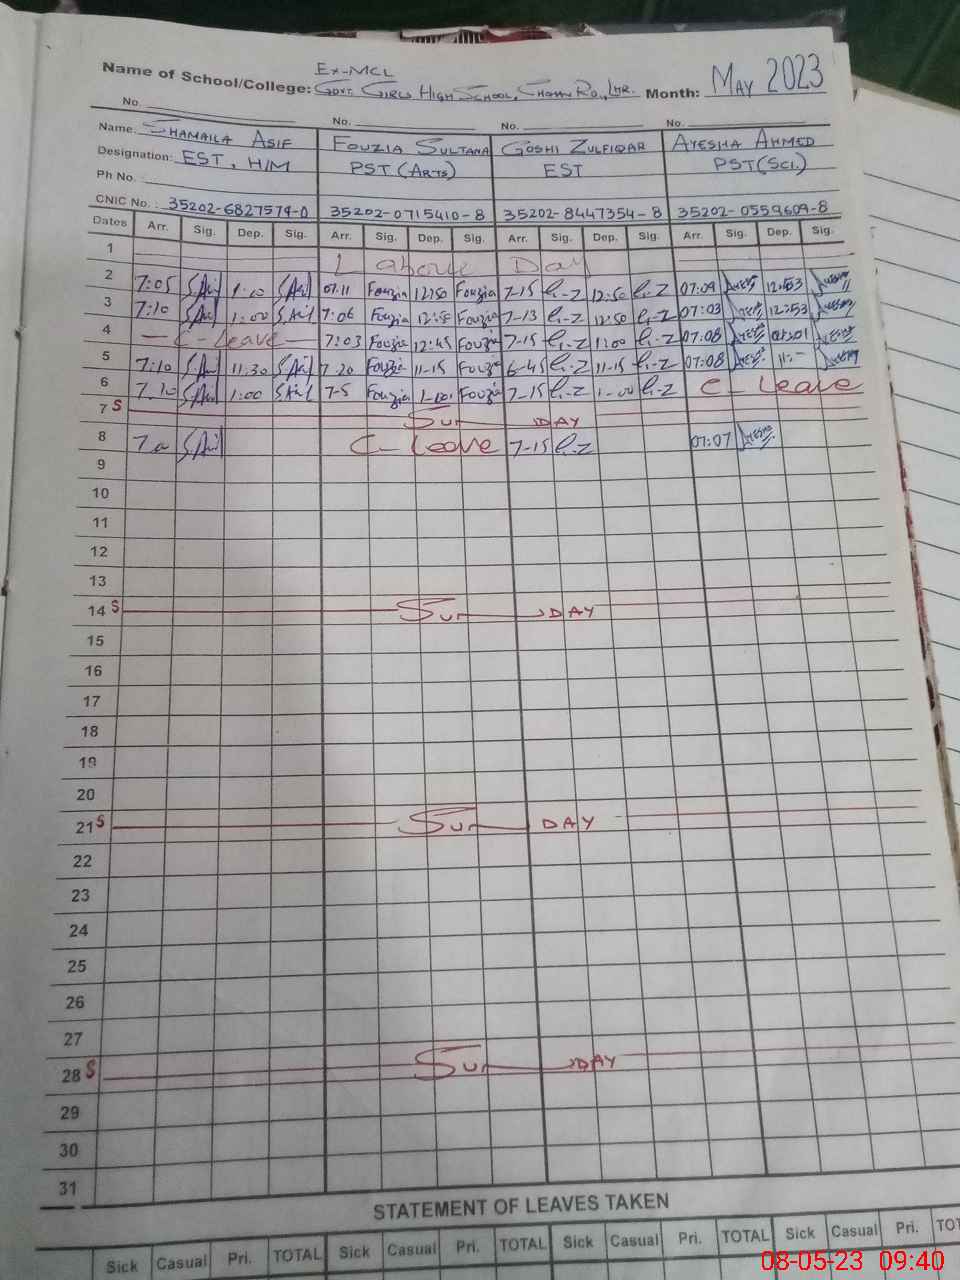 Ex-MCL
Name of School/College: Govt. Girls High School, Road, Lhr. Month: May 2023
No. No. No. No.
Name: Shamaila Asif Fouzia Sultana Goshi Zulfiqar Ayesha Ahmed
Designation: EST, H/M PST (Arts) EST PST (Sci.)
Ph No.
CNIC No.: 35202-6827579-0 35202-0715410-8 35202-8447354-8 35202-0559609-8
Dates Arr. Sig. Dep. Sig. Arr. Sig. Dep. Sig. Arr. Sig. Dep. Sig. Arr. Sig. Dep. Sig.
1 Labour Day
2 7:05 S.Asif 1:10 S.Asif 07:11 Fouzia 12:50 Fouzia 7-15 G-Z 12:50 G-Z 07:09 Ayesha 12:53 Ayesha
3 7:10 S.Asif 1:00 S.Asif 7:06 Fouzia 12:50 Fouzia 7-13 G-Z 12:50 G-Z 07:03 Ayesha 12:53 Ayesha
4 — C-Leave — 7:03 Fouzia 12:45 Fouzia 7-15 G-Z 1:00 G-Z 07:08 Ayesha 01:01 Ayesha
5 7:10 S.Asif 11:30 S.Asif 7:20 Fouzia 11-15 Fouzia 6-45 G-Z 11-15 G-Z 07:08 Ayesha 11:- Ayesha
6 7:10 S.Asif 1:00 S.Asif 7-5 Fouzia 1-00 Fouzia 7-15 G-Z 1-00 G-Z C-Leave
7 S Sunday
8 S.Asif C-Leave 7-15 G-Z 07:07 Ayesha
9
10
11
12
13
14 S Sunday
15
16
17
18
19
20
21 S Sunday
22
23
24
25
26
27
28 S Sunday
29
30
31
STATEMENT OF LEAVES TAKEN
Sick Casual Pri. TOTAL Sick Casual Pri. TOTAL Sick Casual Pri. TOTAL Sick Casual Pri.
08-05-23 09:40